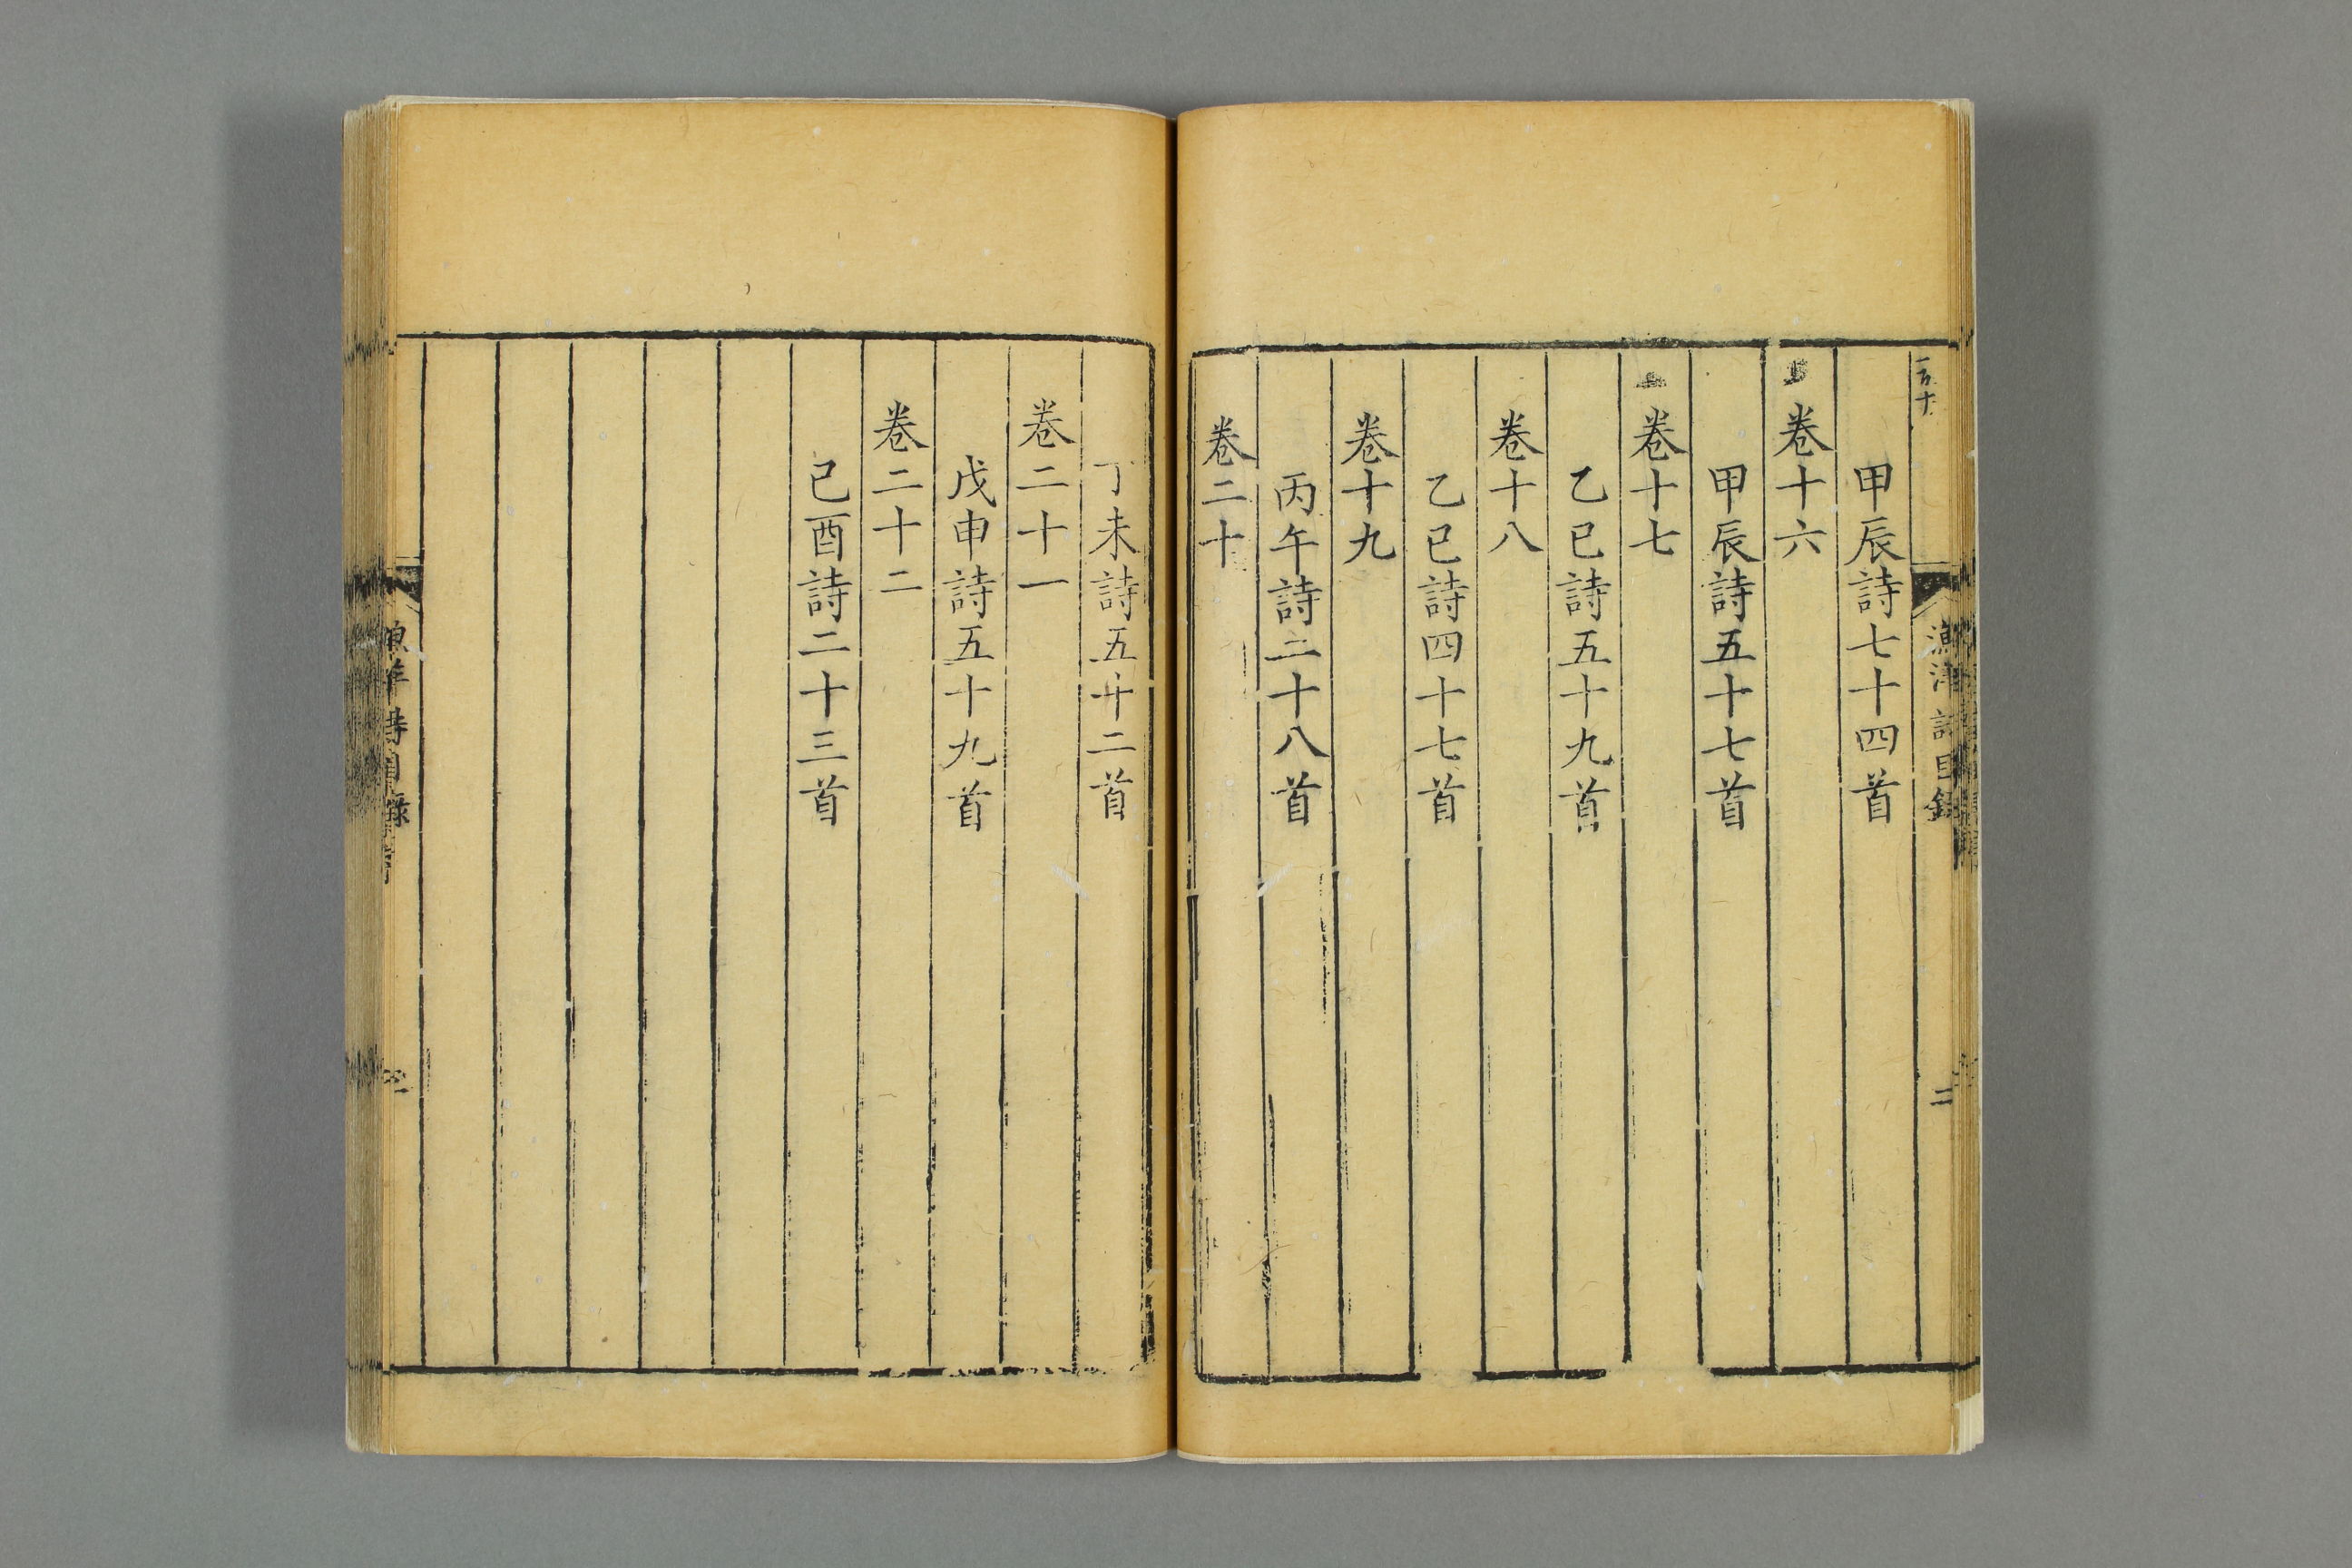 甲辰詩七十四首
卷十六
甲辰詩五十七首
卷十七
乙巳詩五十九首
卷十八
乙巳詩四十七首
卷十九
丙午詩二十八首
卷二十
丁未詩五十二首
卷二十一
戊申詩五十九首
卷二十二
己酉詩二十三首
目錄
二